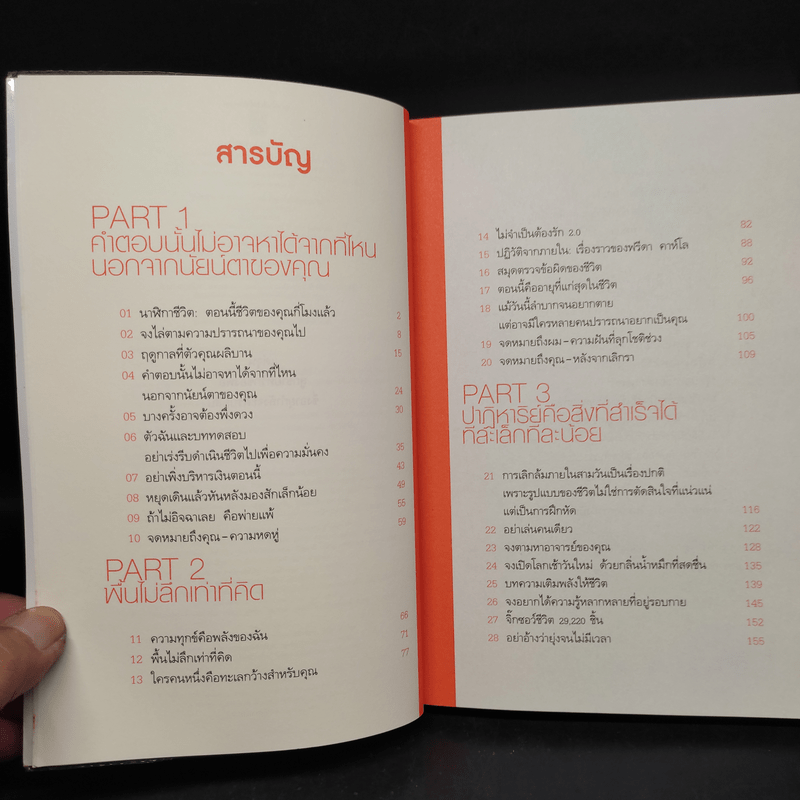 สารบัญ
PART 1
คำตอบนั้นไม่อาจหาได้จากที่ไหน
นอกจากนัยน์ตาของคุณ
01 นาฬิกาชีวิต: ตอนนี้ชีวิตของคุณกี่โมงแล้ว 2
02 จงไล่ตามความปรารถนาของคุณไป 8
03 ฤดูกาลที่ตัวคุณผลิบาน 15
04 คำตอบนั้นไม่อาจหาได้จากที่ไหน
นอกจากนัยน์ตาของคุณ 24
05 บางครั้งอาจต้องพึ่งดวง 30
06 ตัวฉันและบททดสอบ
อย่าเร่งรีบดำเนินชีวิตไปเพื่อความมั่นคง 35
07 อย่าเพิ่งบริหารเงินตอนนี้ 43
08 หยุดเดินแล้วหันหลังมองสักเล็กน้อย 49
09 ถ้าไม่อิจฉาเลย คือพ่ายแพ้ 55
10 จดหมายถึงคุณ-ความหดหู่ 59
PART 2
พื้นไม่ลึกเท่าที่คิด
11 ความทุกข์คือพลังของฉัน 66
12 พื้นไม่ลึกเท่าที่คิด 71
13 ใครคนหนึ่งคือทะเลกว้างสำหรับคุณ 77
14 ไม่จำเป็นต้องรัก 2.0 82
15 ปฏิวัติจากภายใน: เรื่องราวของฟรีดา คาห์โล 88
16 สมุดตรวจข้อผิดของชีวิต 92
17 ตอนนี้คืออายุที่แก่สุดในชีวิต 95
18 แม้วันนี้ลำบากจนอยากตาย
แต่อาจมีใครหลายคนปรารถนาอยากเป็นคุณ 100
19 จดหมายถึงผม-ความฝันที่ลุกโชติช่วง 105
20 จดหมายถึงคุณ-หลังจากเลิกรา 109
PART 3
ปาฏิหาริย์คือสิ่งที่สำเร็จได้
ทีละเล็กทีละน้อย
21 การเลิกล้มภายในสามวันเป็นเรื่องปกติ
เพราะรูปแบบของชีวิตไม่ใช่การตัดสินใจที่แน่วแน่
แต่เป็นการฝึกหัด 116
22 อย่าเล่นคนเดียว 122
23 จงตามหาอาจารย์ของคุณ 128
24 จงเปิดโลกเช้าวันใหม่ ด้วยกลิ่นน้ำหมึกที่สดชื่น 135
25 บทความเติมพลังให้ชีวิต 139
26 จงอยากได้ความรู้หลากหลายที่อยู่รอบกาย 145
27 จิ๊กซอว์ชีวิต 29,220 ชิ้น 152
28 อย่าอ้างว่ายุ่งจนไม่มีเวลา 155